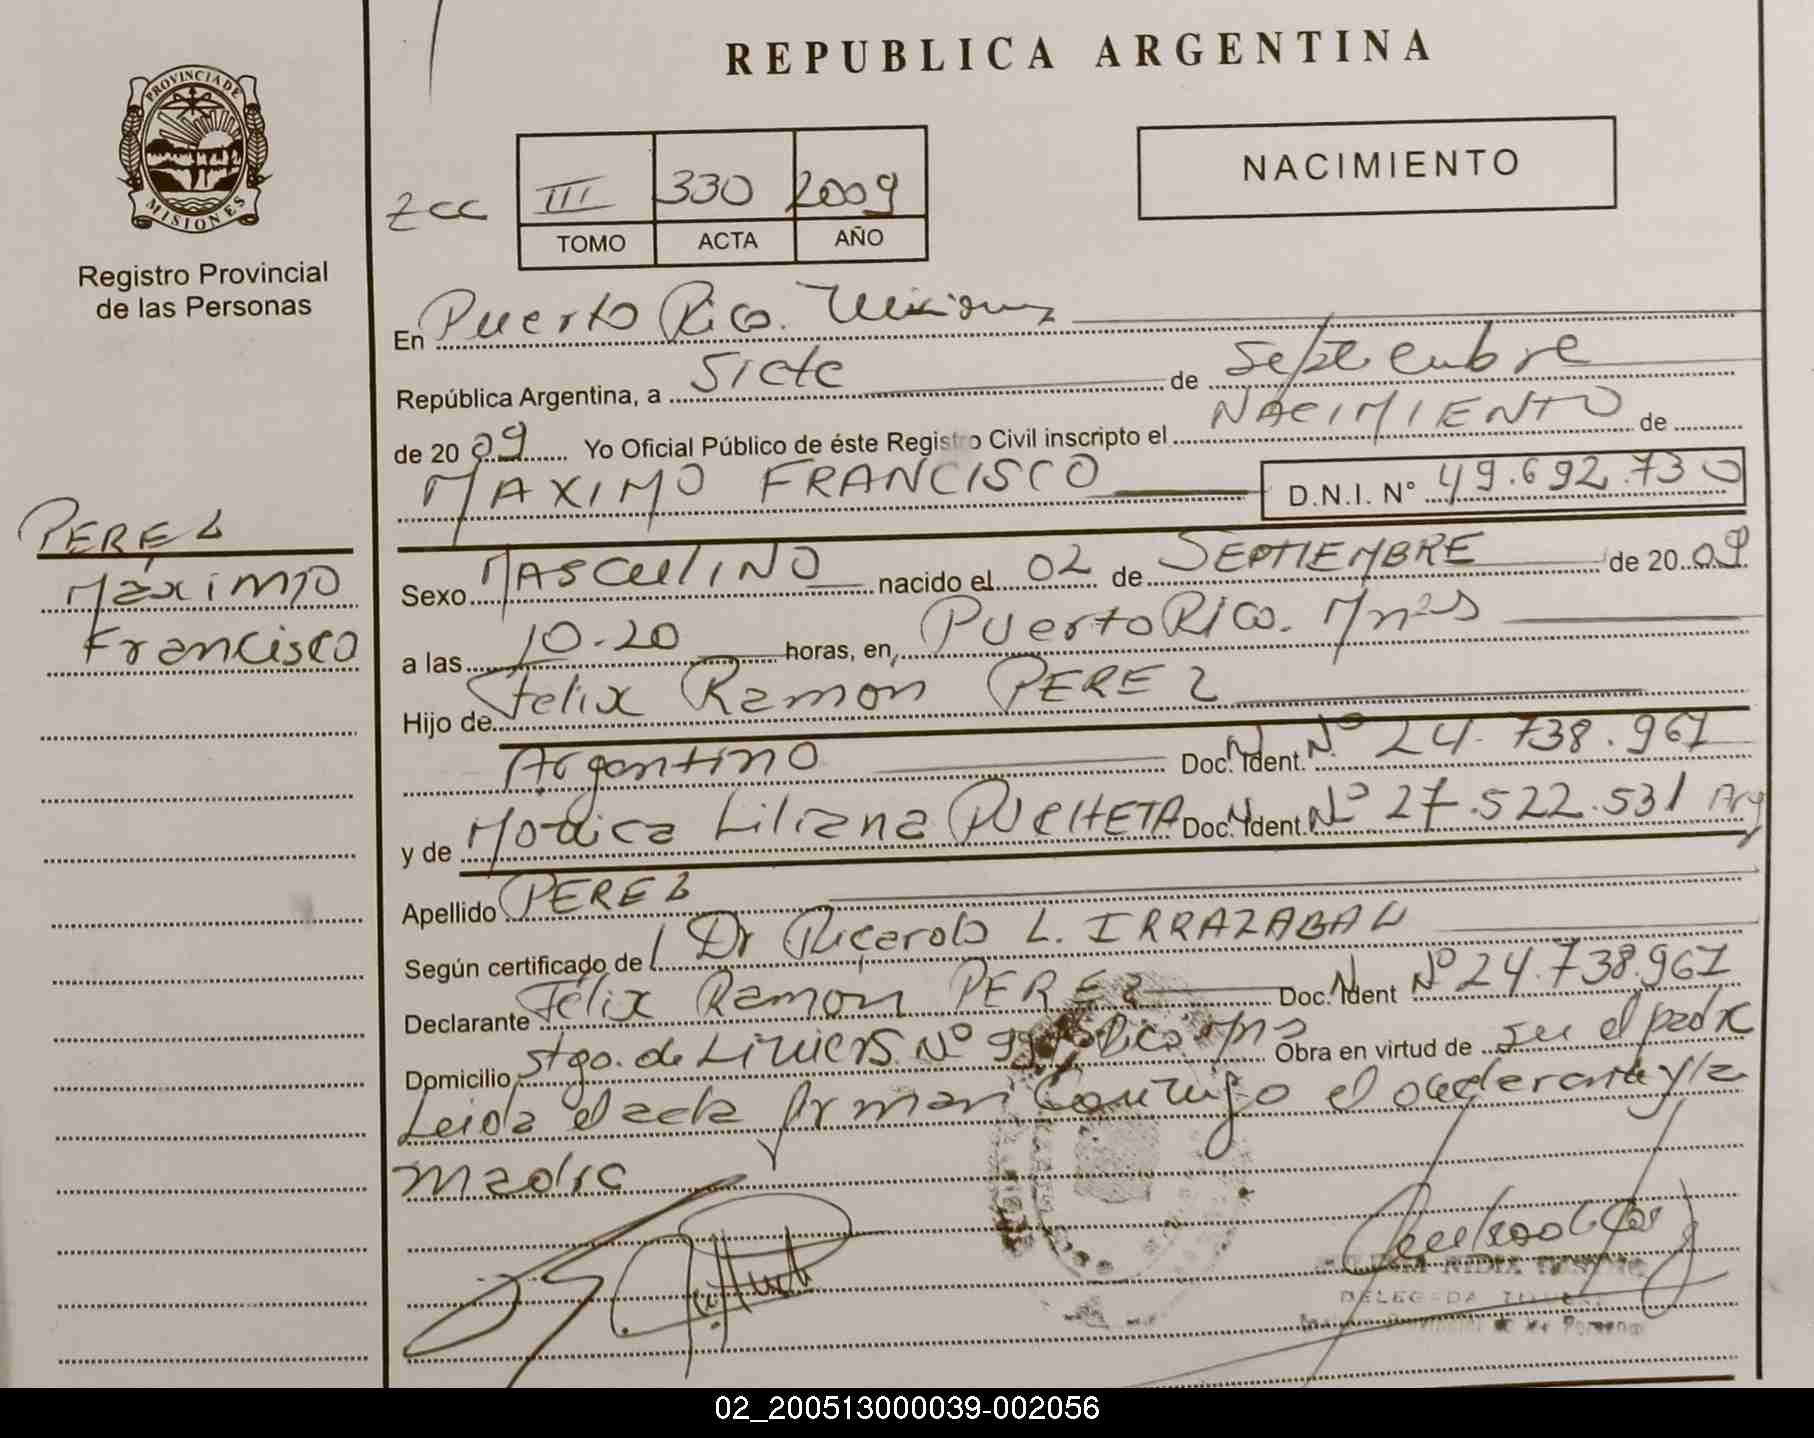 REPUBLICA ARGENTINA
PROVINCIA DE
MISIONES
Registro Provincial
de las Personas
NACIMIENTO
zcc III 330 2009
TOMO ACTA AÑO
En Puerto Rico. Misiones
República Argentina, a Siete de Septiembre
de 2009 Yo Oficial Público de éste Registro Civil inscripto el NACIMIENTO de
MAXIMO FRANCISCO D.N.I. N° 49.692.730
PEREZ
Máximo
Francisco
Sexo MASCULINO nacido el 02 de SEPTIEMBRE de 2009
a las 10.20 horas, en Puerto Rico. Mnes
Hijo de Felix Ramon PEREZ
Argentino Doc. Ident. N° 24.738.967
y de Monica Liliana PUCHETA Doc. Ident. N° 27.522.531 Arg
Apellido PEREZ
Según certificado del Dr Ricardo L. IRRAZABAL
Declarante Félix Ramon PEREZ Doc. Ident N° 24.738.967
Domicilio Stgo. de Liniers N° Rico Mns Obra en virtud de ser el padre
Leida el acta firman Conmigo el declarante y la
madre
DELEGADA TITULAR
Provincial de las Personas
02_200513000039-002056